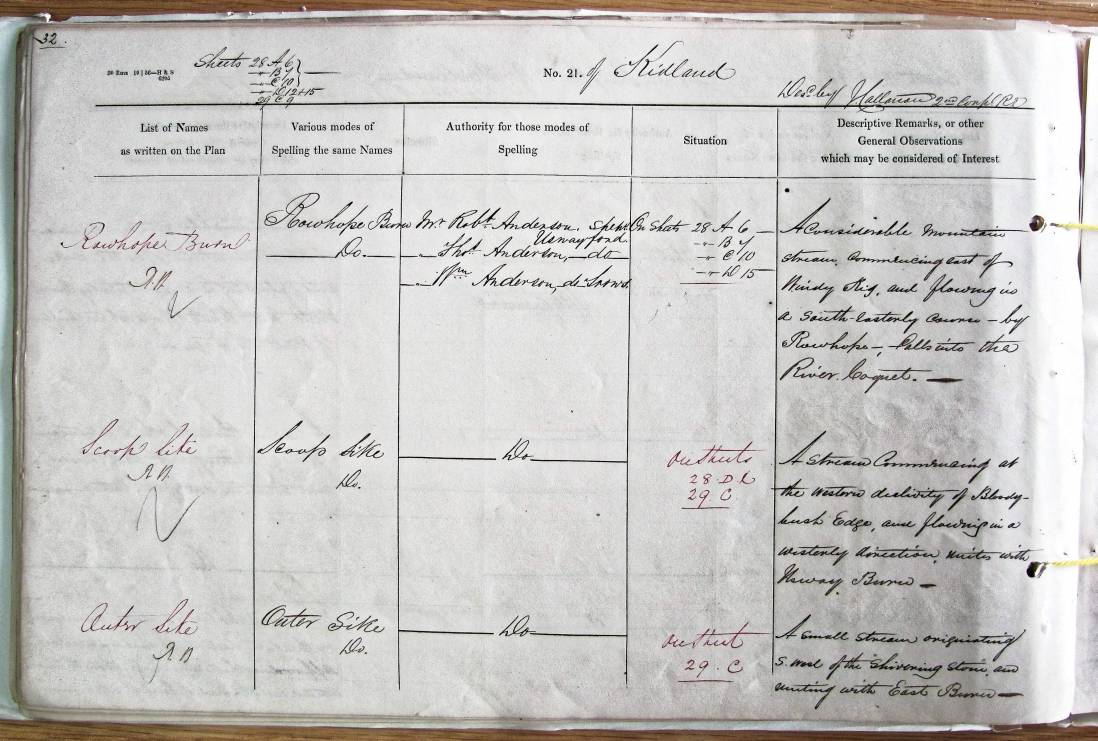 32.
20 Rms 10 | 56—H & S
6295
Sheets 28 A 6
" B 7
" C 10
" D 12+15
29 C 9
No. 21. of Kidland
Desc by Hallaman 2nd Corpl RE
List of Names
as written on the Plan
Various modes of
Spelling the same Names
Authority for those modes of
Spelling
Situation
Descriptive Remarks, or other
General Observations
which may be considered of Interest
Rowhope Burn
Rowhope Burn
Do.
Mr. Robt. Anderson.
Uswayford
" Thos. Anderson, do
" Wm Anderson, do
On Sheets 28 A 6
" B 7
" C 10
" D 15
A Considerable Mountain
stream, commencing east of
Windy Rig, and flowing in
a South-easterly course – by
Rowhope –, falls into the
River Coquet. —
Scoop Sike
Scoop Sike
Do.
Do
On Sheets
28 D
29. C.
A stream Commencing at
the western declivity of Bloody-
bush Edge, and flowing in a
westerly direction, unites with
Usway Burn —
Outer Sike
Outer Sike
Do.
Do
On Sheet
29. C
A small stream originating
S. west of the Shivering Stone, and
uniting with East Burn —